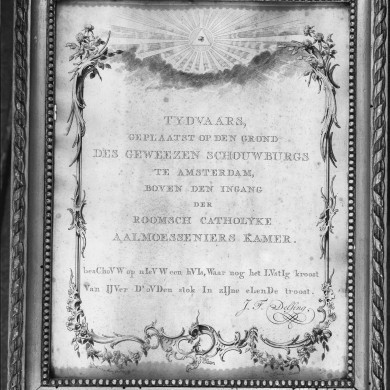 TYDVAARS,
GEPLAATST OP DEN GROND
DES GEWEEZEN SCHOUWBURGS
TE AMSTERDAM,
BOVEN DEN INGANG
DER
ROOMSCH CATHOLYKE
AALMOESSENIERS KAMER.
besChoVW op nLeVW een hVIs, Waar nog het LVstIg kroost
Van IJVer D'oVDen stok In zIJne eLenDe troost.
J. F. Delsing,